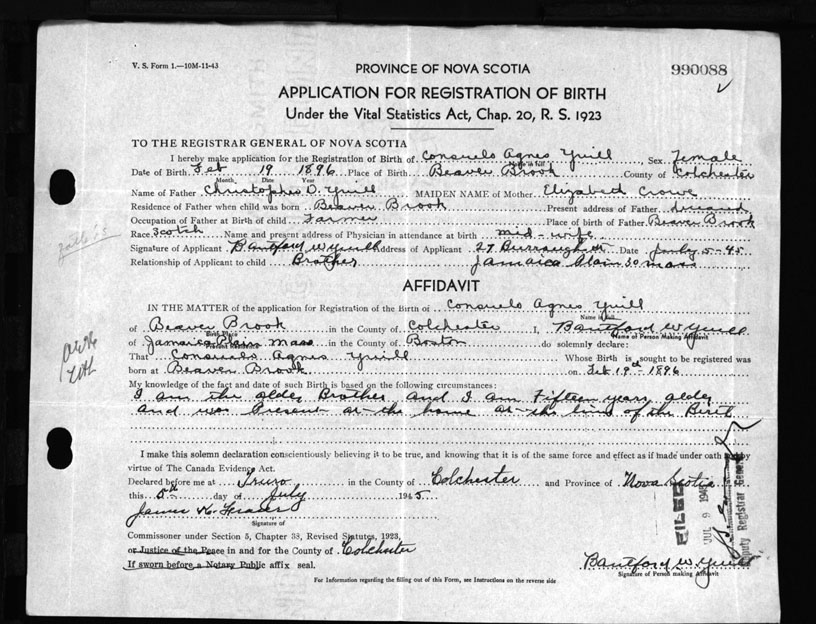 V. S. Form 1.—10M-11-43
990088
PROVINCE OF NOVA SCOTIA
APPLICATION FOR REGISTRATION OF BIRTH
Under the Vital Statistics Act, Chap. 20, R. S. 1923
TO THE REGISTRAR GENERAL OF NOVA SCOTIA
I hereby make application for the Registration of Birth of Consuelo Agnes Yuill, Sex Female
Name in full
Date of Birth Feb 19 1896 Place of Birth Beaver Brook County of Colchester
Month Date Year
Name of Father Christopher O. Yuill MAIDEN NAME of Mother Elizabeth Crowe
Residence of Father when child was born Beaver Brook Present address of Father
Occupation of Father at Birth of child Farmer Place of birth of Father Beaver Brook
Race Scotch Name and present address of Physician in attendance at birth mid-wife
Signature of Applicant Bantford W Yuill Address of Applicant 27 Burroughs St. Date July-5-45
Relationship of Applicant to child Brother Jamaica Plain 30 mass
AFFIDAVIT
IN THE MATTER of the application for Registration of the Birth of Consuelo Agnes Yuill
Name in full
of Beaver Brook in the County of Colchester I, Bantford W Yuill
Birth Place
Name of Person Making Affidavit
of Jamaica Plain Mass in the County of Boston do solemnly declare:
Present Residence
That Consuelo Agnes Yuill Whose Birth is sought to be registered was
born at Beaver Brook on Feb 19th 1896
My knowledge of the fact and date of such Birth is based on the following circumstances:
I am the older Brother and I am Fifteen years older
and was Present at the home at the time of the Birth
I make this solemn declaration conscientiously believing it to be true, and knowing that it is of the same force and effect as if made under oath and by
virtue of The Canada Evidence Act.
Declared before me at Truro in the County of Colchester and Province of Nova Scotia
this 5th day of July 1945
James K. Fraser
Signature of
Commissioner under Section 5, Chapter 33, Revised Statutes, 1923,
or Justice of the Peace in and for the County of Colchester
If sworn before a Notary Public affix seal.
Bantford W Yuill
Signature of Person making Affidavit
For Information regarding the filling out of this Form, see Instructions on the reverse side
FILED
JUL 9 1945
Deputy Registrar General